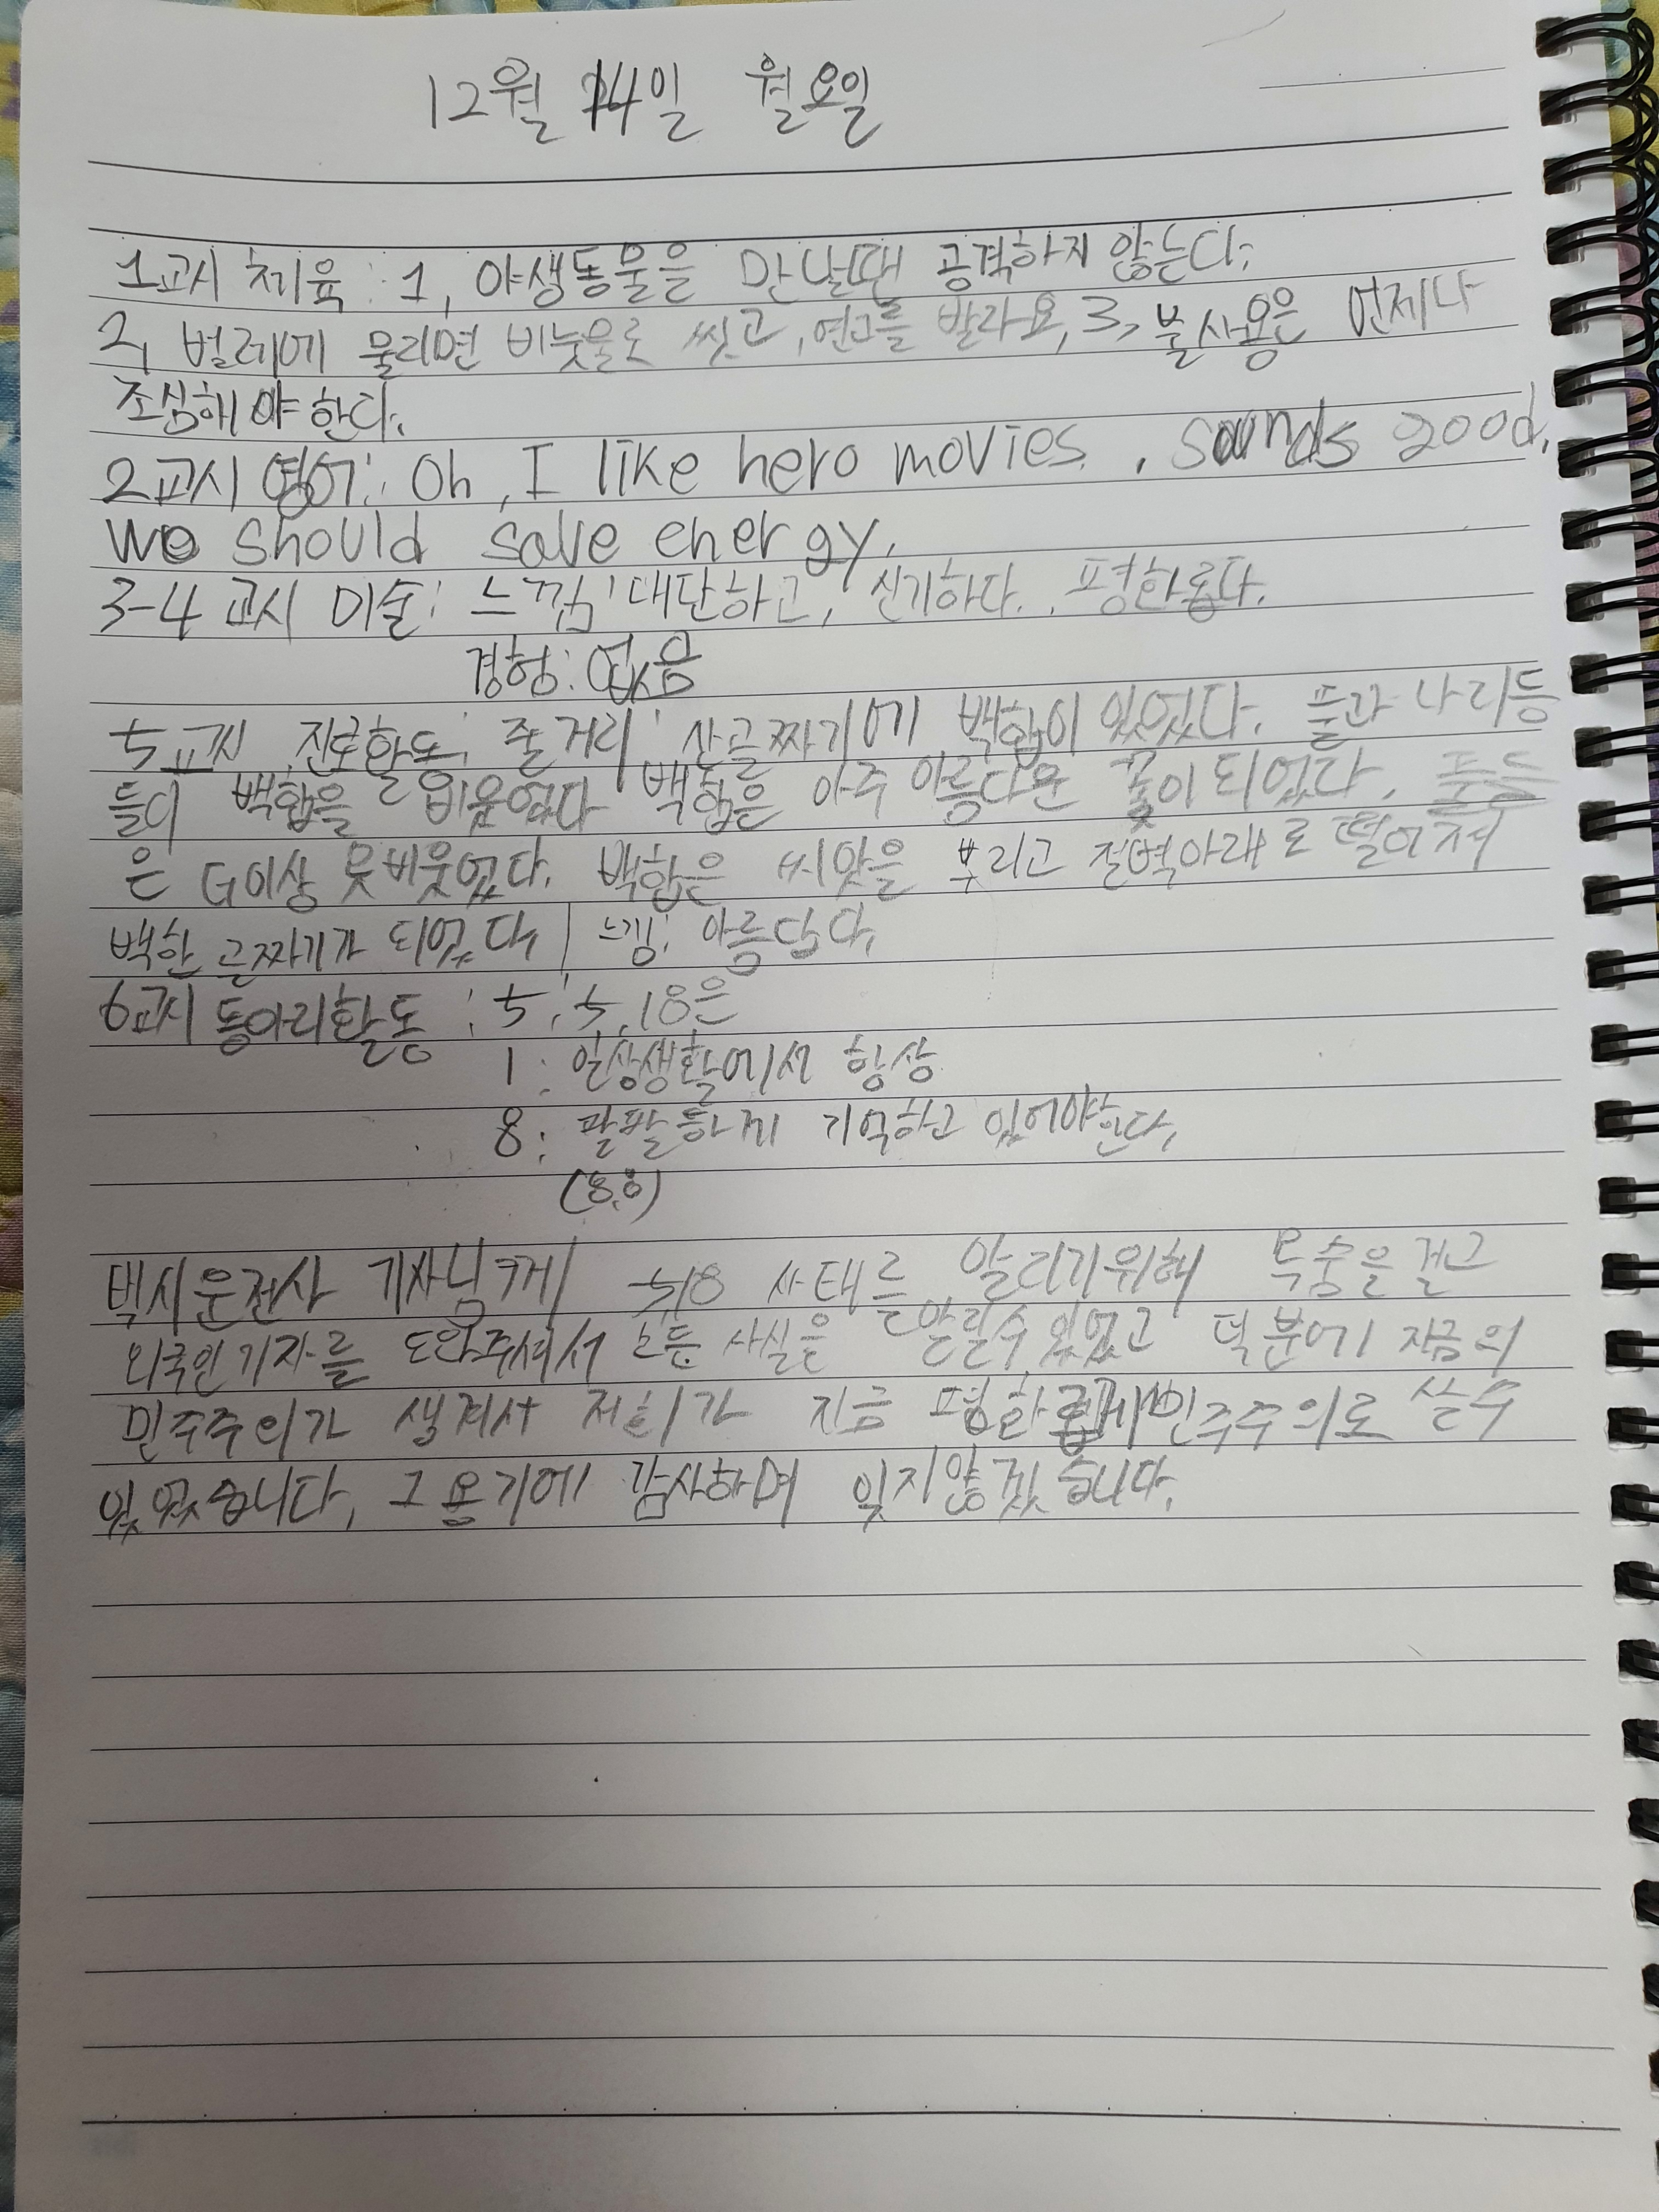 12월 14일 월요일
1교시 체육 : 1, 야생동물을 만날땐 공격하지 않는다.
2, 벌레에 물리면 비눗물로 씻고, 연고를 발라요, 3, 불사용은 언제나
조심해야한다.
2교시 영어: Oh, I like hero movies. , sounds good,
we should save energy.
3-4교시 미술: 느낌: 대단하고, 신기하다. , 평화롭다.
경험: 없음
5교시 진로활동: 줄거리: 산골짜기에 백합이 있었다. 풀과 나리등
들이 백합을 비웃었다 백합은 아주 아름다운 꽃이 되었다. 풀들
은 더이상 못비웃었다. 백합은 씨앗을 뿌리고 절벽아래로 떨어져
백한 골짜기가 되었다, 느낌: 아름답다,
6교시 동아리활동 : 5: 5.18은
1: 일상생활에서 항상
8: 팔팔하게 기억하고 있어야한다,
(8.8)
택시운전사 기사님께 5,18 사태를 알리기위해 목숨을 걸고
외국인기자를 도와주셔서 모든 사실을 알릴수있었고 덕분에 지금의
민주주의가 생겨서 저희가 지금 평화롭게 민주주의로 살수
있었습니다, 그 용기에 감사하며 잊지않겠습니다.